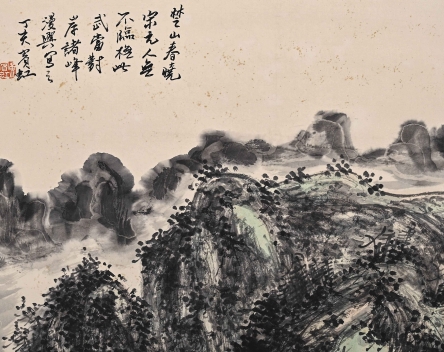 楚山春曉
宋元人無
不臨此
武當對
岸諸峰
漫興寫之
丁亥賓虹